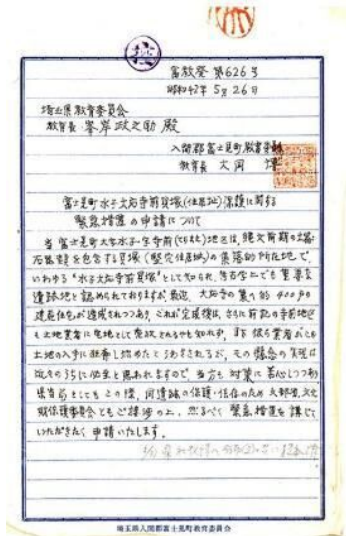 富教発 第626号
昭和42年 5月26日
埼玉県教育委員会
教育長 峯岸政之助 殿
入間郡富士見町教育委員
教育長 大岡
富士見町水子大応寺前貝塚(住居址)保護に関する
緊急措置の申請について
当 富士見町大字水子字寺前 地区は、縄文前期の
貝塚を包含する (竪穴住居址)の集落的 所在地で、
いわゆる"水子大応寺前貝塚"として知られ、考古学上でも重要な
遺跡地と認められておりますが、最近、大応寺の裏 約400戸の
建売住宅が造成されつつあり、これが完成後は、さらに前記の寺前地区
も土地業者に宅地として売放されるやも知れず、
土地の入手に
近々のうちに必至と思われますので、当方も 対策に苦心しつつあり
県当局としてもこの際、同遺跡の保護・保存のため 文部省、文化
財保護委員会ともご接渉の上、然るべく 緊急措置を講じて
いただきたく 申請いたします。
埼玉県入間郡富士見町教育委員会